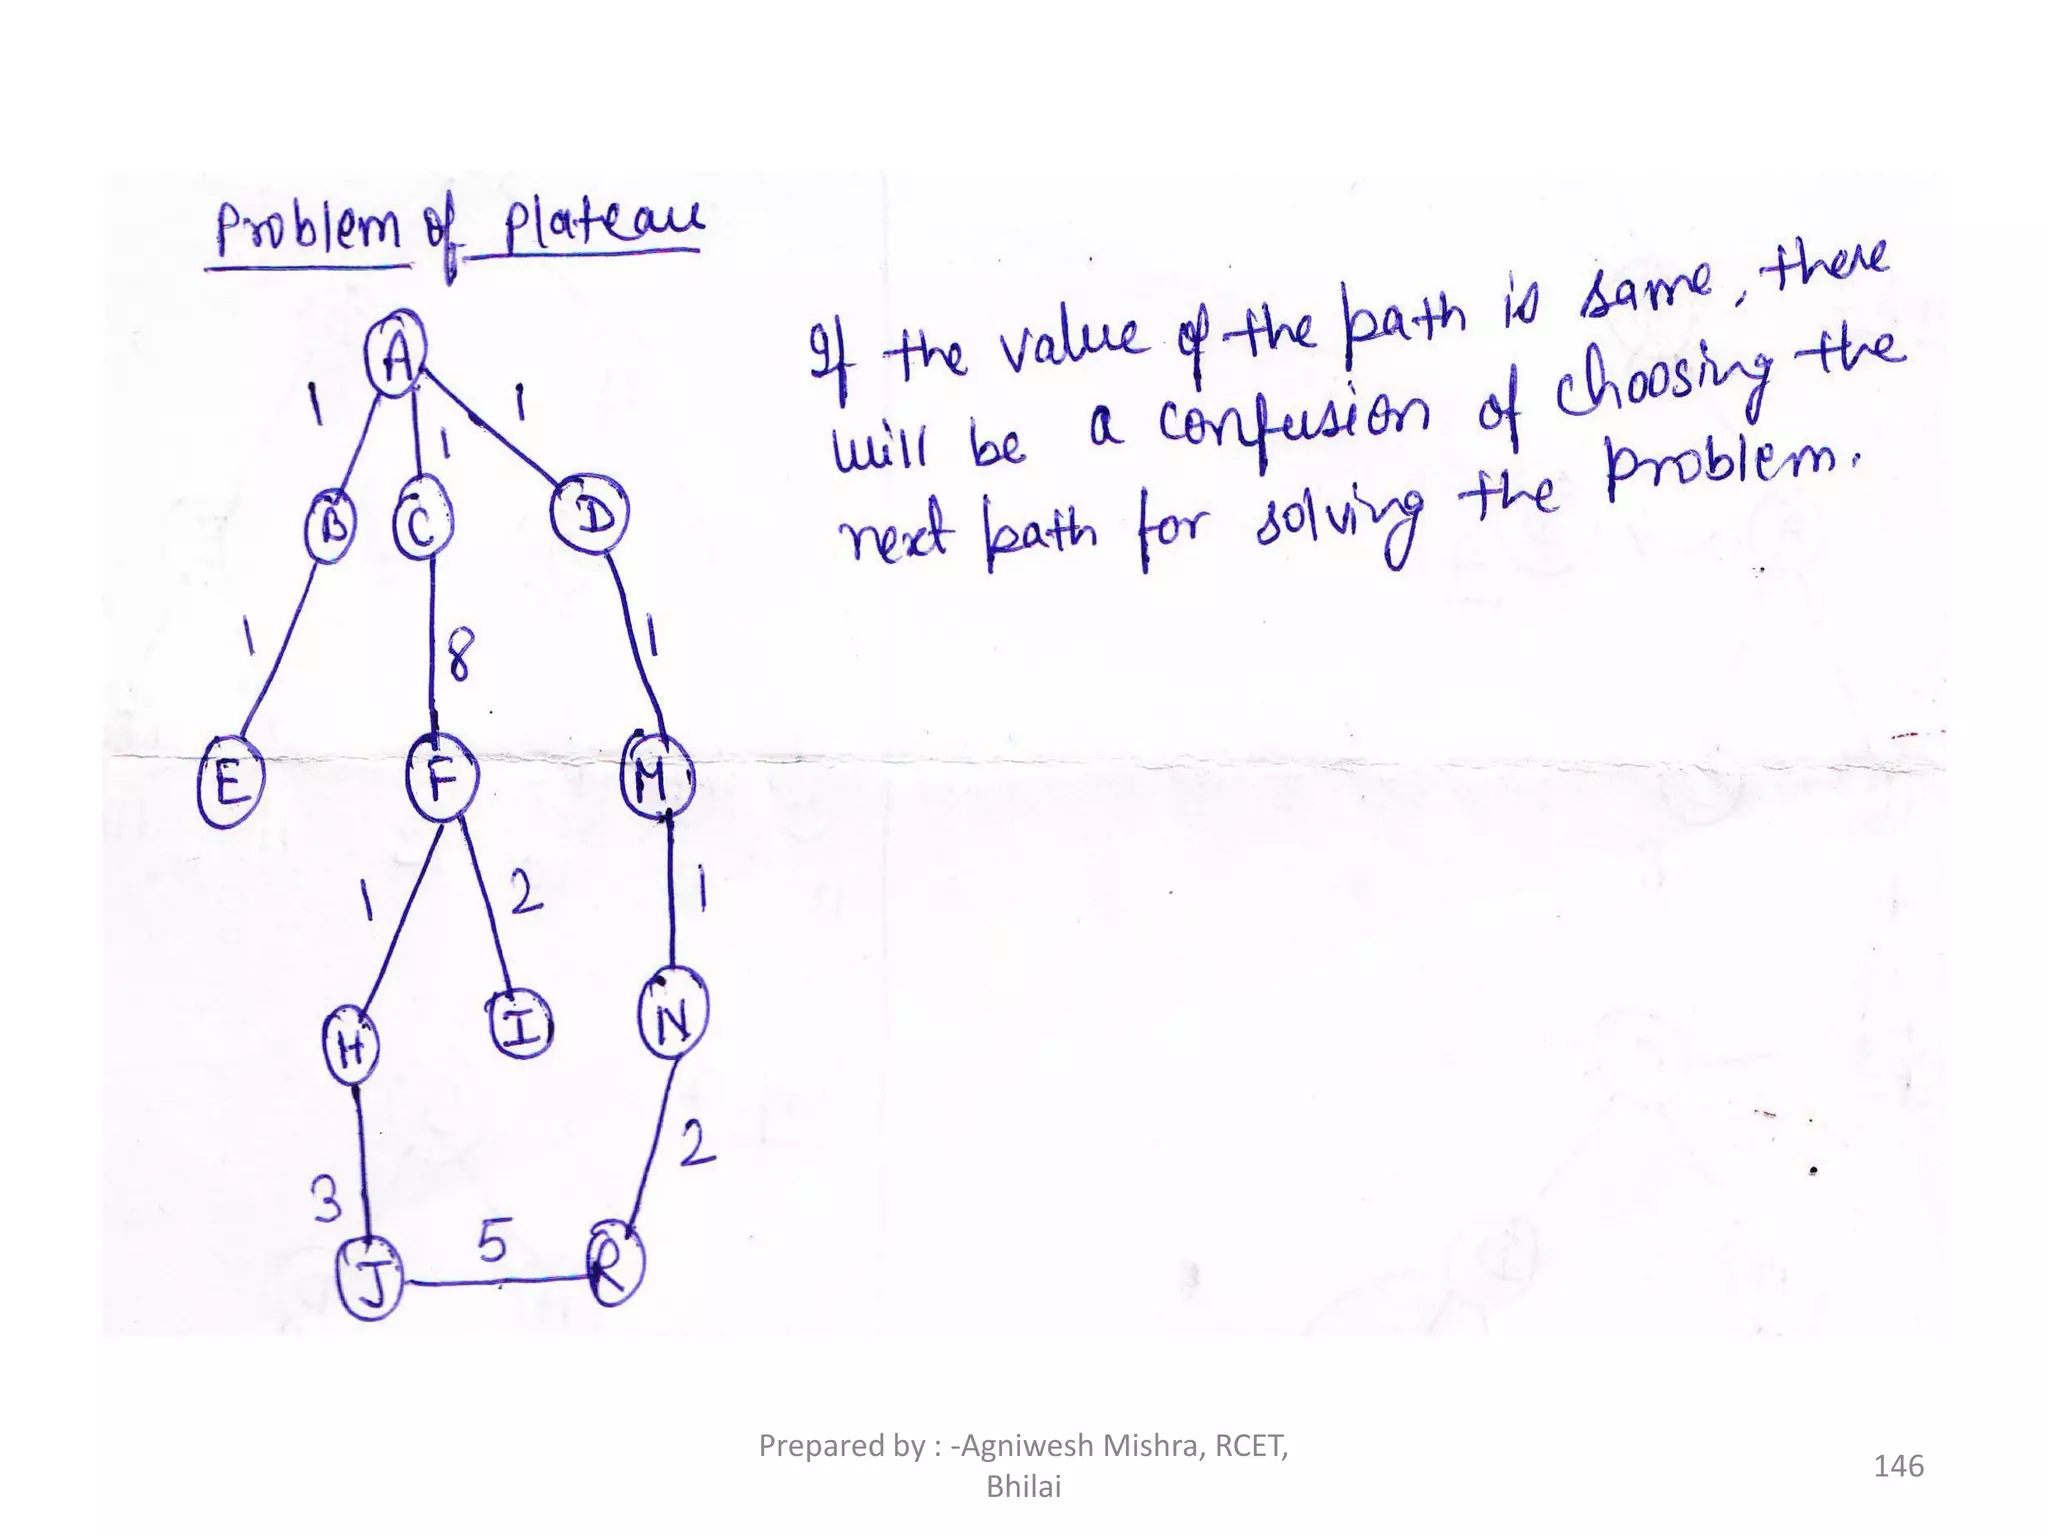 Problem of plateau
If the value of the path is same, there
will be a confusion of choosing the
next path for solving the problem.
A
1
1
1
B
C
D
1
8
1
E
F
M
1
2
1
H
I
N
3
2
5
J
R
Prepared by : -Agniwesh Mishra, RCET,
Bhilai
146